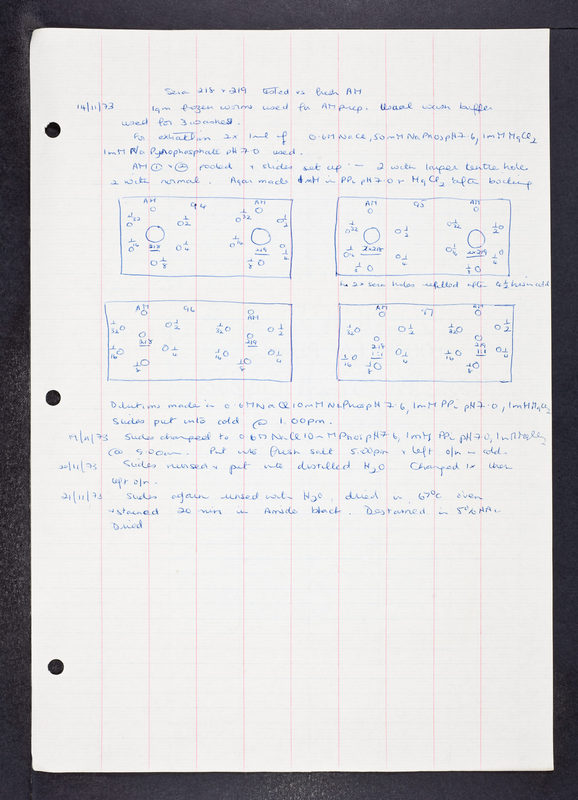 Sera 218 + 219 tested vs fresh AM
14/11/73 1gm frozen worms used for AM prep. Usual wash buffer
used for 3 washes.
For extraction 2x 1ml of 0.6M NaCl, 50mM NaPhos pH 7.6, 1mM MgCl2
1mM Na Pyrophosphate pH 7.0 used.
AM ① + ② pooled + slides set up :- 2 with larger centre hole
2 with normal. Agar made 1mM in PPi pH 7.0 + MgCl2 after
AM 94
1/32 1/2 1/32 1/2
1/16 218 1/4 1/16 219 1/4
1/8 1/8
AM 95
1/32 1/2 1/32 1/2
1/16 2x218 1/4 1/16 2x219 1/4
1/8 1/8
2x sera holes refilled after 4½ hours in cold
AM 96 AM
1/32 1/2 1/32 1/2
1/16 218 1/4 1/16 219 1/4
1/8 1/8
AM 97 AM
1/32 1/2 1/32 1/2
1/16 218 1:1 1/4 1/16 219 1:1 1/4
1/8 1/8
Dilutions made in 0.6M NaCl 10mM NaPhos pH 7.6, 1mM PPi pH 7.0, 1mM MgCl2
Slides put into cold @ 1.00pm.
Slides changed to 0.6M NaCl 10mM Phos pH 7.6, 1mM PPi pH 7.0, 1mM MgCl2
@ 9.00am. Put into fresh salt 5.00pm + left o/n in cold.
20/11/73 Slides rinsed + put into distilled H2O. Changed 1x then
left o/n.
21/11/73 Slides again rinsed with H2O, dried in 67°C oven
+ stained 20 min in Amido black. Destained in 5% HAc
Dried